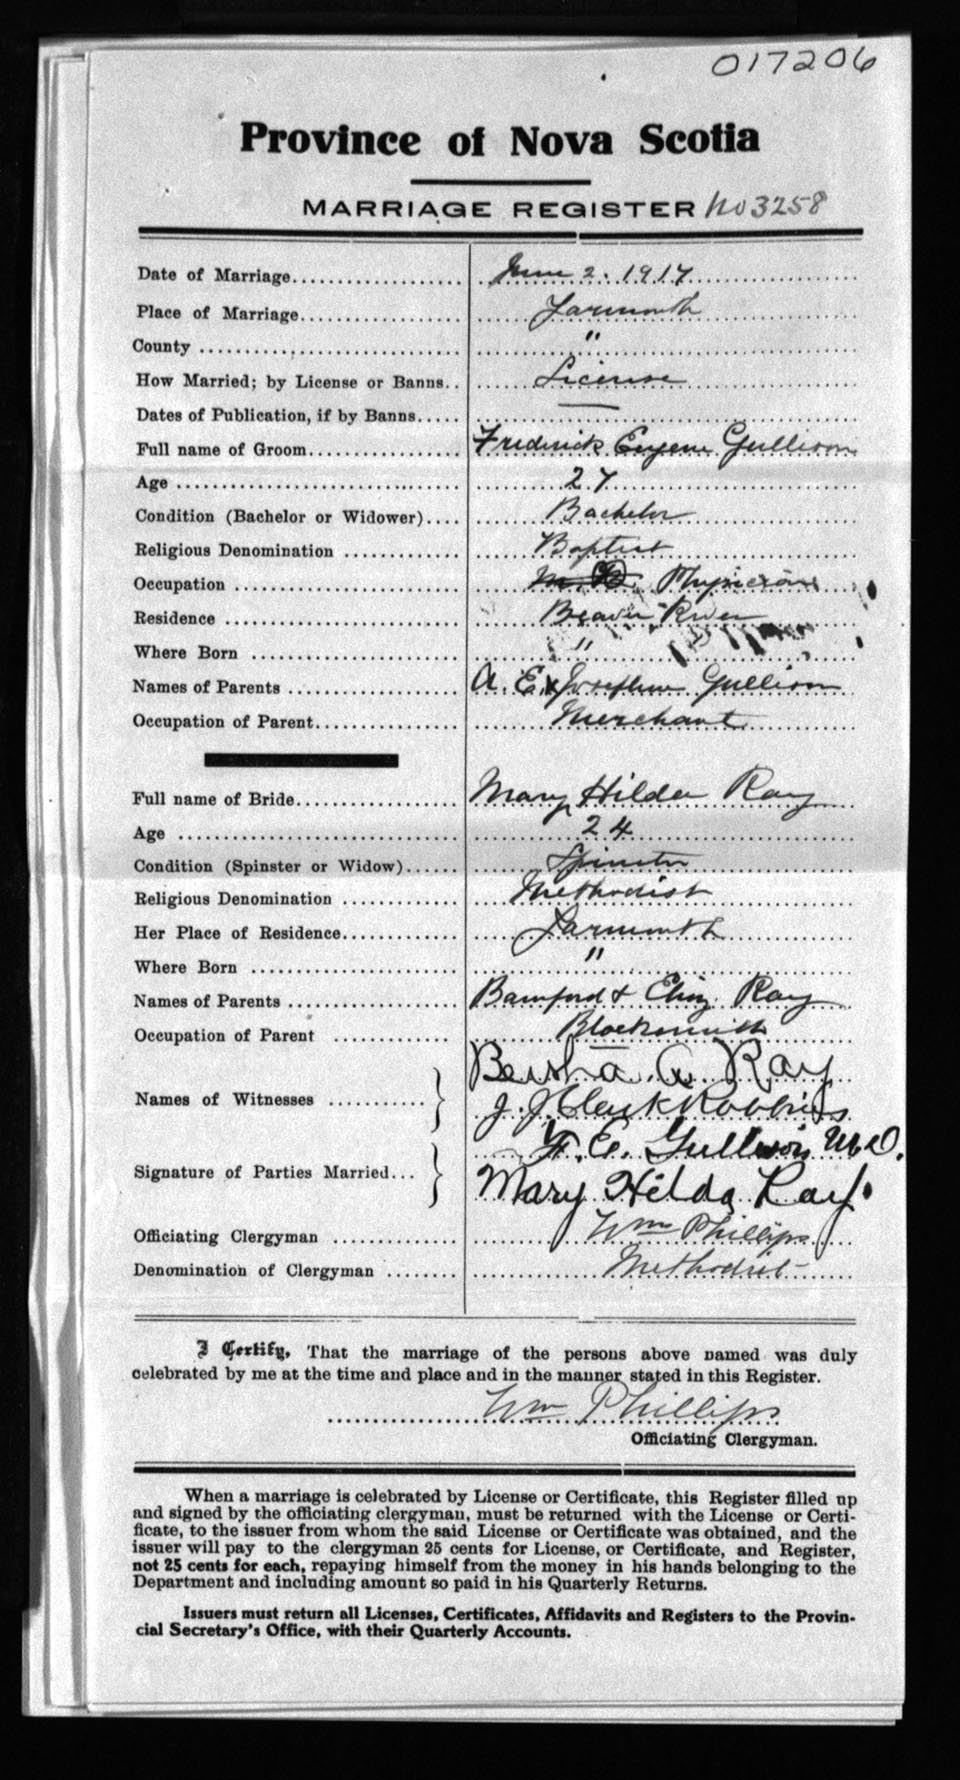 017206
Province of Nova Scotia
MARRIAGE REGISTER No 3258
Date of Marriage June 2. 1917
Place of Marriage Yarmouth
County "
How Married; by License or Banns License
Dates of Publication, if by Banns —
Full name of Groom Frederick Eugene Gullison
Age 27
Condition (Bachelor or Widower) Bachelor
Religious Denomination Baptist
Occupation M. D. Physician
Residence Beaver River
Where Born "
Names of Parents A. E. & Josephine Gullison
Occupation of Parent Merchant
Full name of Bride Mary Hilda Ray
Age 24
Condition (Spinster or Widow) Spinster
Religious Denomination Methodist
Her Place of Residence Yarmouth
Where Born "
Names of Parents Bamford & Eliz. Ray
Occupation of Parent Blacksmith
Names of Witnesses Bertha A. Ray
J. J. Clark Robbins
Signature of Parties Married F. E. Gullison M.D.
Mary Hilda Ray.
Officiating Clergyman Wm Phillips
Denomination of Clergyman Methodist
I Certify, That the marriage of the persons above named was duly
celebrated by me at the time and place and in the manner stated in this Register.
Wm Phillips
Officiating Clergyman.
When a marriage is celebrated by License or Certificate, this Register filled up
and signed by the officiating clergyman, must be returned with the License or Certi-
ficate, to the issuer from whom the said License or Certificate was obtained, and the
issuer will pay to the clergyman 25 cents for License, or Certificate, and Register,
not 25 cents for each, repaying himself from the money in his hands belonging to the
Department and including amount so paid in his Quarterly Returns.
Issuers must return all Licenses, Certificates, Affidavits and Registers to the Provin-
cial Secretary's Office, with their Quarterly Accounts.